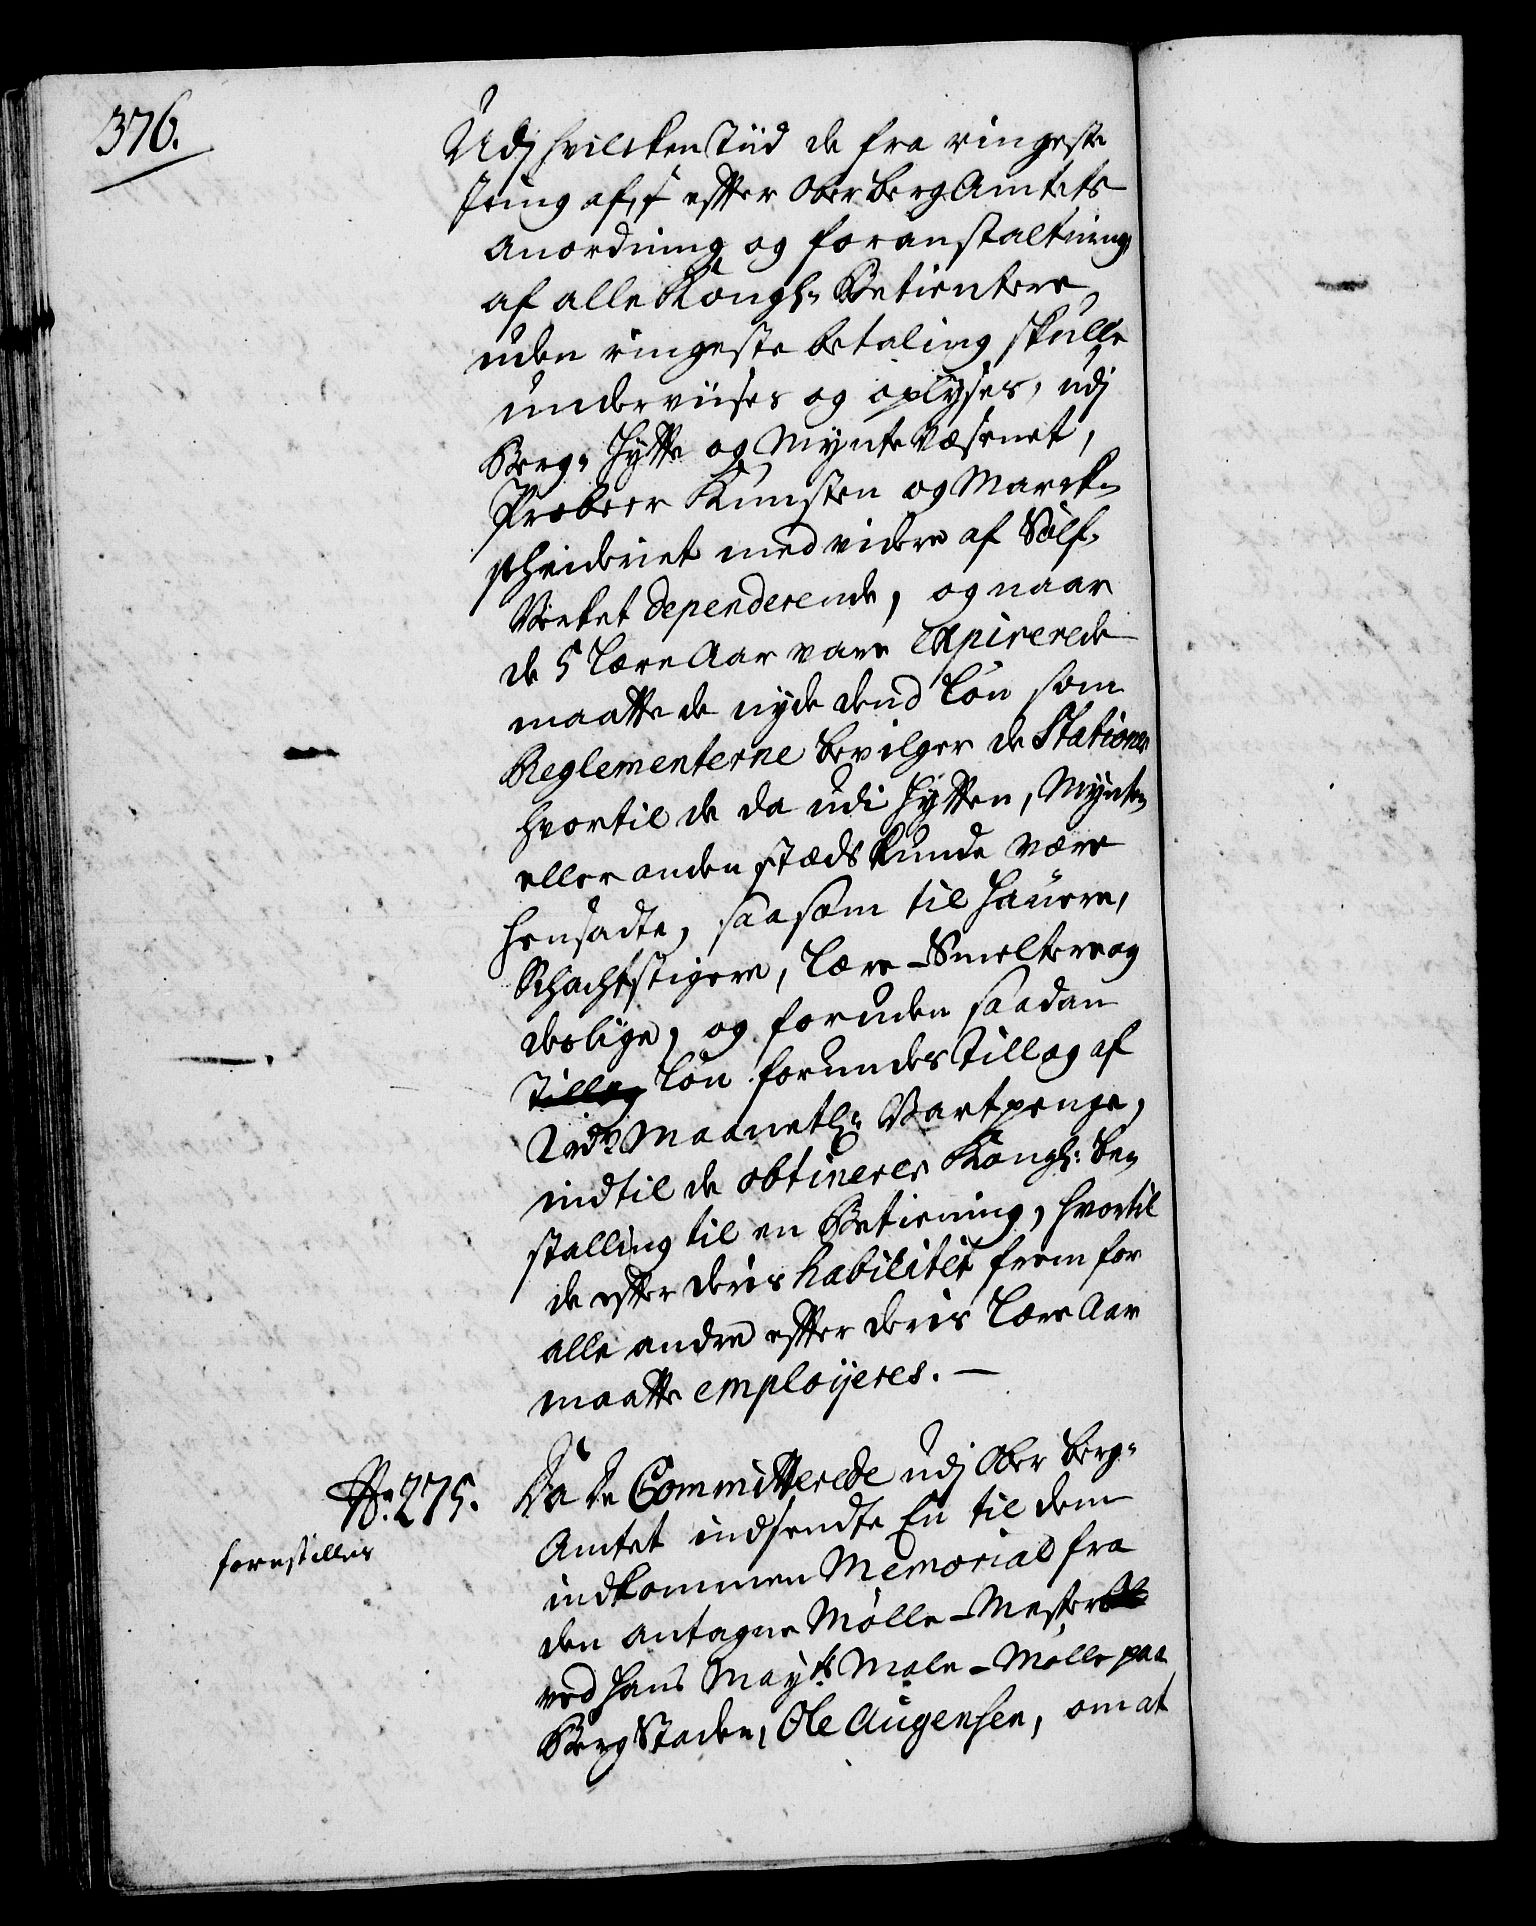 376.
Udj hvilcken Tiid de fra ringeste
ting af, efter OberbergAmtets
anordning og foranstaltning
af alle Kongl: Betientere,
uden ringeste betaling skulle
underviises og oplyses, udj
Berg- Hytte og Myntevæsenet,
Probeer Kunsten og Marck-
scheideriet med videre af Sølf-
Verket dependerende, og naar
de 5 Lære Aar vare Expirerede
maatte de nyde dend Løn som
Reglementerne bevilger de Stationer
hvortil de da udi Hytten, Mynten
eller anden stæds kunde være
hensadte, saasom til Hauere,
Schachtstigere, Lære-Smeltere og
deslige, og foruden saadan
Tillæg Løn forundes Tillæg af
2 rdr Maanetl: Vartpenge,
indtil de obtinerer Kongl: be-
stalling til en Betiening, hvortil
de efter deris habilitet frem for
alle andre efter deris Lære Aar
maatte employeres. —
No. 275. Da De Committerede udj Ober berg-
forestilles
Amtet indsendte En til dem
indkommen Memorial fra
den antagne Mølle-Mester
ved Hans Mayts Male-Mølle paa
BergStaden, Ole Augensen, om at